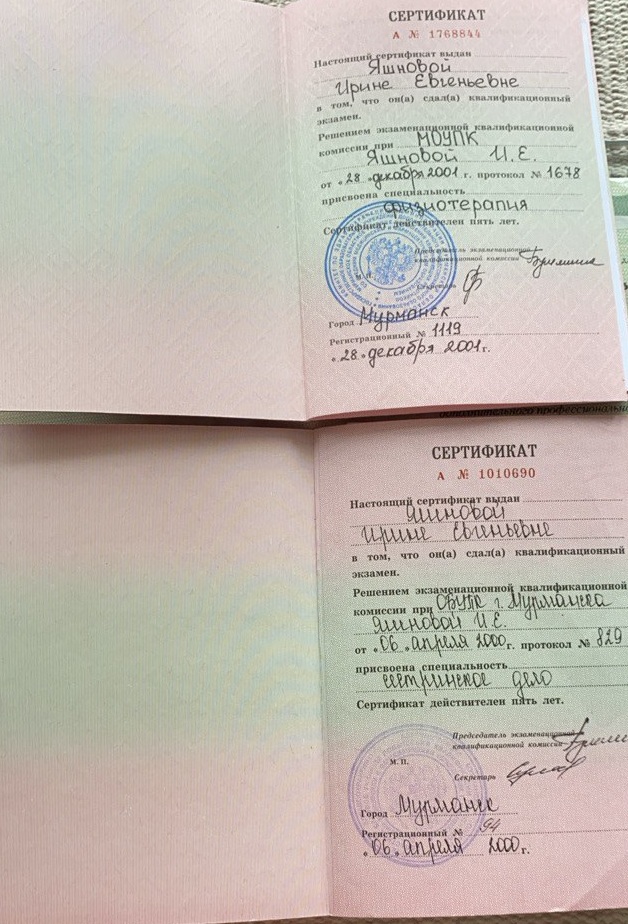 СЕРТИФИКАТ
А № 1768844
Настоящий сертификат выдан
Яшновой
Ирине Евгеньевне
в том, что он(а) сдал(а) квалификационный
экзамен.
Решением экзаменационной квалификационной
комиссии при МОУПК
Яшновой И.Е.
от «28» декабря 2001 г. протокол № 1678
присвоена специальность
физиотерапия
Сертификат действителен пять лет.
Председатель экзаменационной
квалификационной комиссии
М.П.
Секретарь
Город Мурманск
Регистрационный № 1119
«28» декабря 2001 г.
дополнительного профессиональн
СЕРТИФИКАТ
А № 1010690
Настоящий сертификат выдан
Яшновой
Ирине Евгеньевне
в том, что он(а) сдал(а) квалификационный
экзамен.
Решением экзаменационной квалификационной
комиссии при ОБУПК г. Мурманска
Яшновой И.Е.
от «06» апреля 2000 г. протокол № 829
присвоена специальность
сестринское дело
Сертификат действителен пять лет.
Председатель экзаменационной
квалификационной комиссии
М.П.
Секретарь
Город Мурманск
Регистрационный № 94
«06» апреля 2000 г.